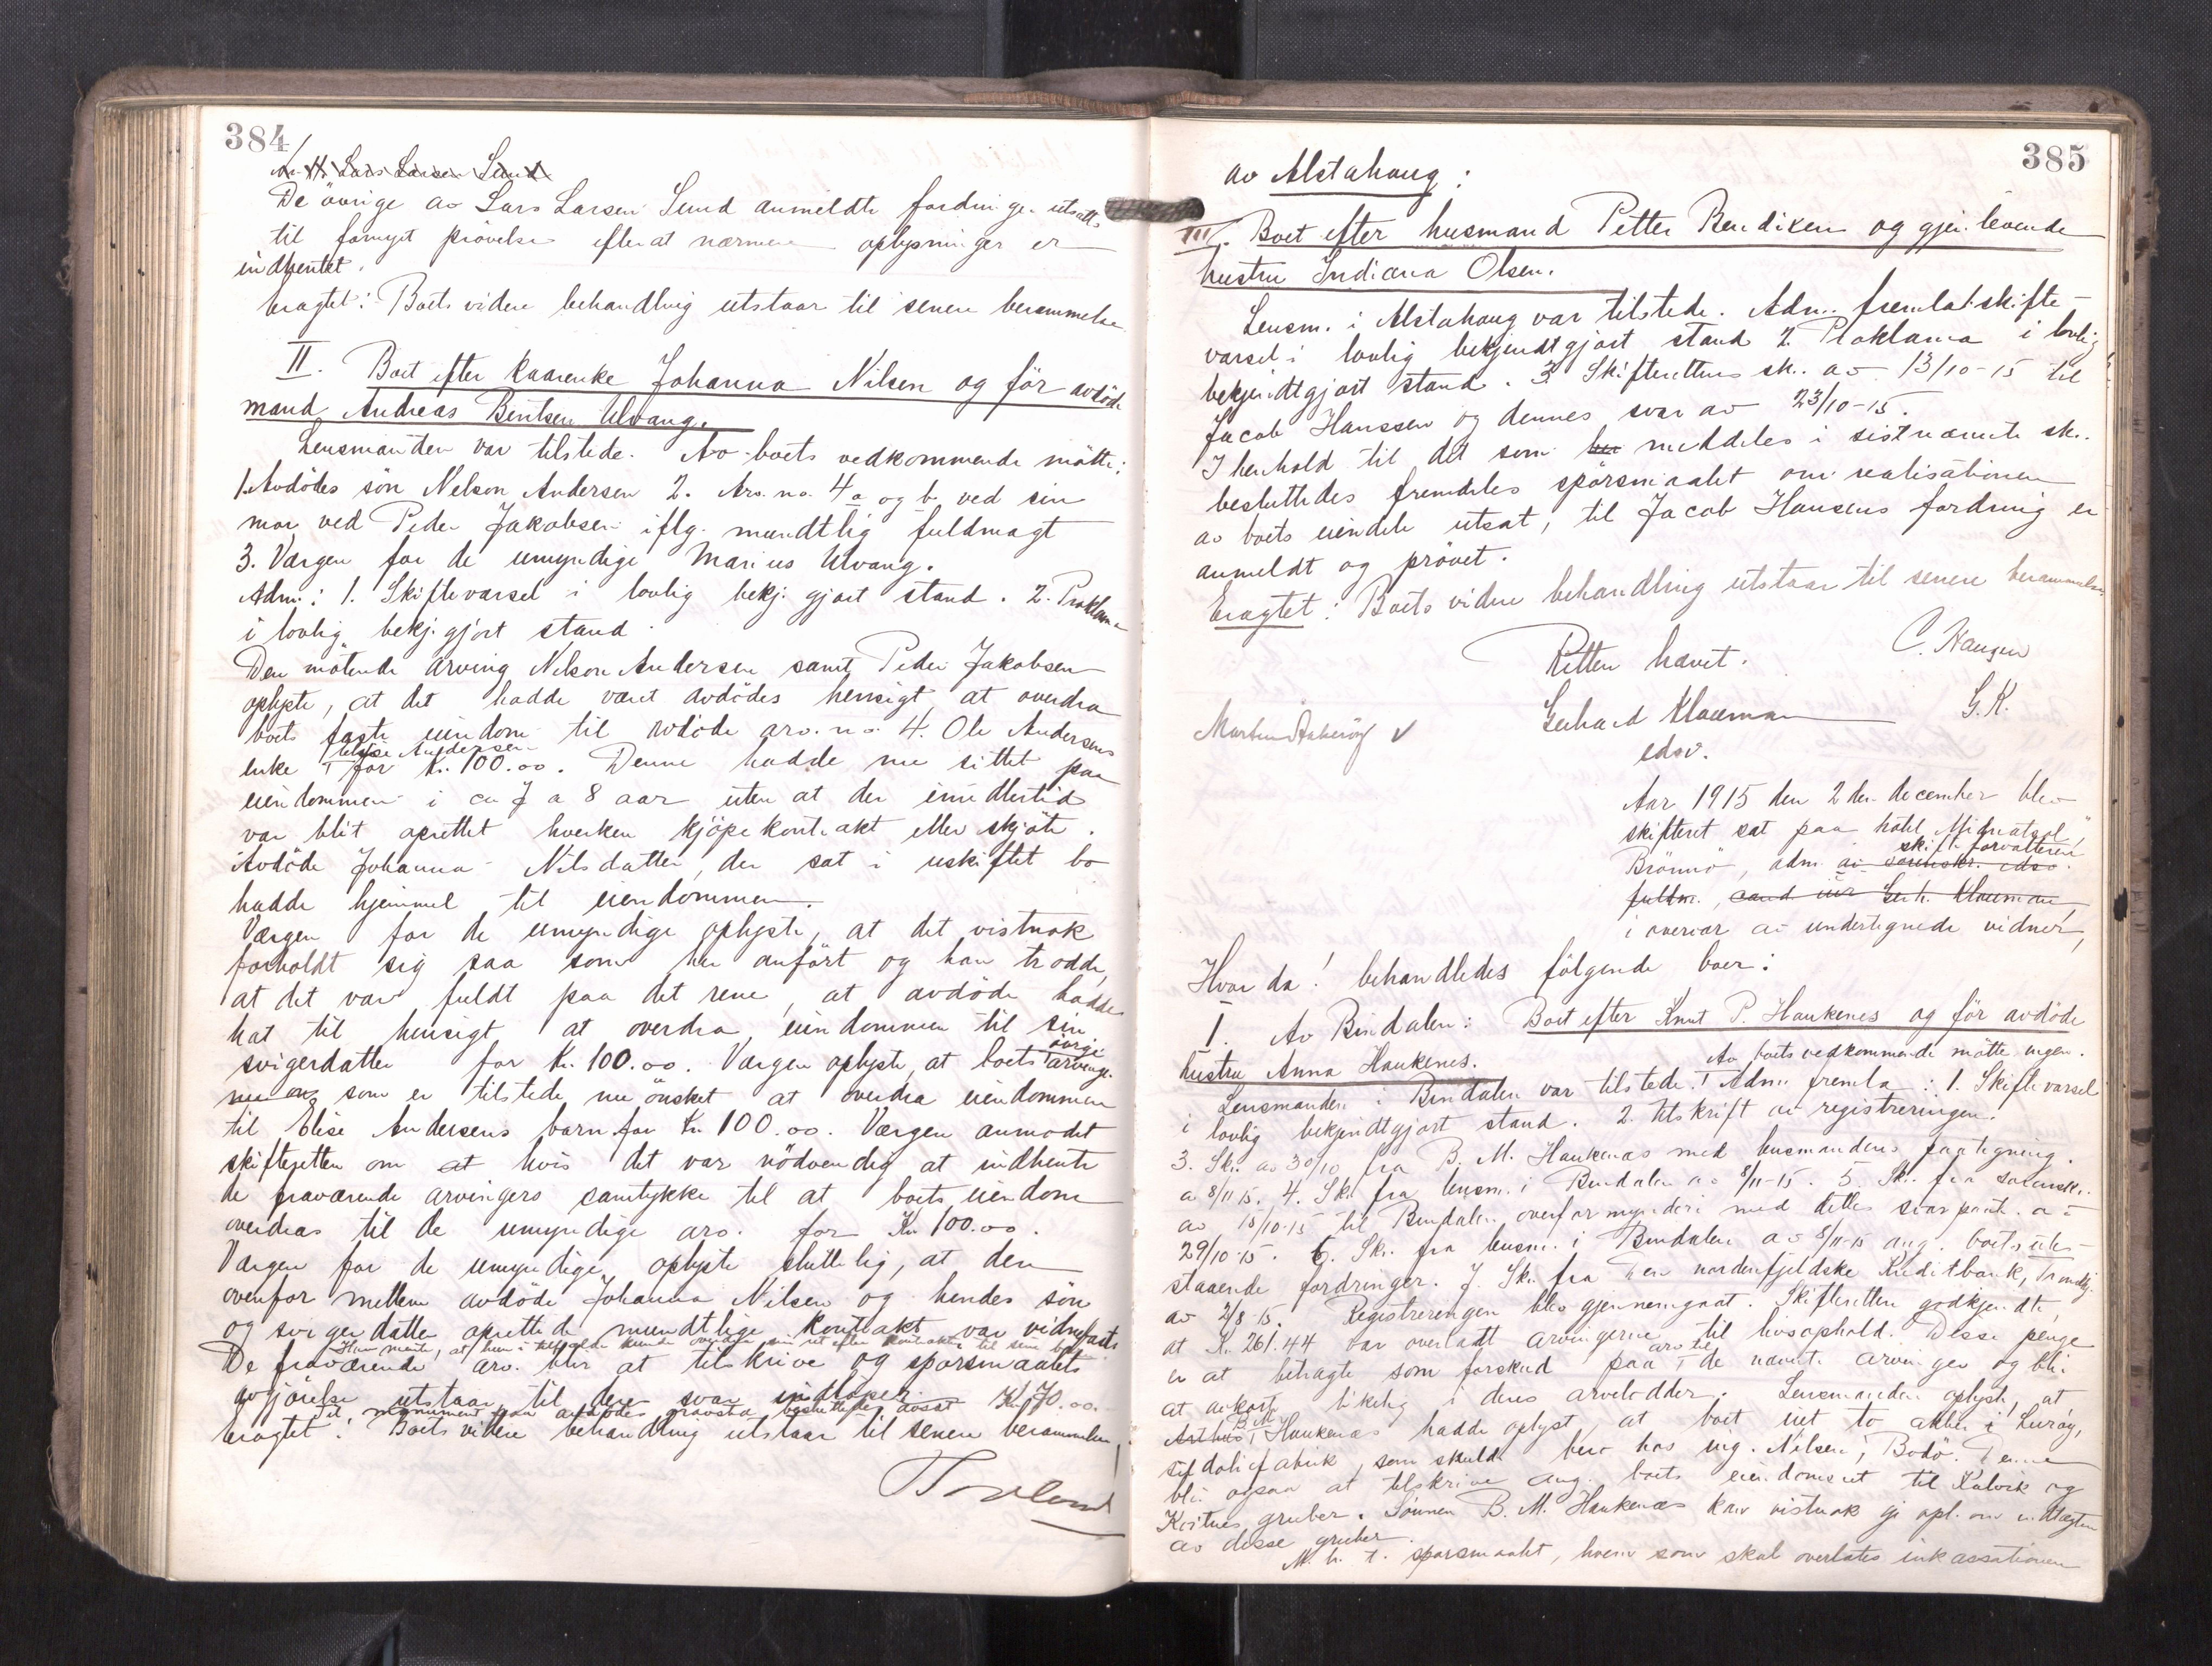 384
De övrige av Lars Larsen Sund anmeldte fordringer utsatts
til fornyet prövelse efterat nærmere oplysninger er
indhentet.
Eragtet: Boets videre behandling utstaar til senere berammelse.
II. Boet efter kaarenke Johanna Nilsen og för avdöde
mand Andreas Bentsen Ulvang.
Lensmanden var tilstede. Av boets vedkommende mötte:
1. Avdödes sön Nelson Andersen 2. Arv. no. 4 a og b ved sin
mor ved Peder Jakobsen iflg. mundtlig fuldmagt
3. Værgen for de umyndige Marius Ulvang.
Adm.: 1. Skiftevarsel i lovlig bekj. gjort stand. 2. Proklama
i lovlig bekj. gjort stand.
Den mötende arving Nelson Andersen samt Peder Jakobsen
oplyste, at det hadde været avdödes hensigt, at overdra
boets faste eiendom til avdöde arv. no. 4. Ole Andersens
enke Elise Andersen for Kr. 100.00. Denne hadde nu sittet paa
eiendommen i ca 7 a 8 aar uten at der imidlertid
var blit oprettet hverken kjöpekontrakt eller skjöte.
Avdöde Johanna Nilsdatter, der sat i uskiftet bo
hadde hjemmel til eiendommen.
Værgen for de umyndige oplyste, at det vistnok
forholdt sig saa som her anfört og han trodde,
at det var fuldt paa det rene, at avdöde hadde
hat til hensigt at overdra eiendommen til sin
svigerdatter for Kr. 100.00. Værgen oplyste, at boets övrige arvinger
som er tilstede nu önsket at overdra eiendommen
til Elise Andersens barn for Kr. 100.00. Værgen anmodet
skifteretten om at hvis det var nödvendig at indhente
de fraværende arvingers samtykke til at boets eiendom
overdras til de umyndige arv. for Kr. 100.00.
Værgen for de umyndige oplyste sluttelig, at den
ovenfor mellem avdöde Johanna Nilsen og hendes sön
og svigerdatter oprettede mundtlige kontrakt var vidnefast.
De fraværende arv. blir at tilskrive og spörsmaalets
avgjörelse utstaar til deres svar indlöper.
Til monument paa avdödes gravsted besluttedes avsat Kr. 70.00.
Eragtet: Boets videre behandling utstaar til senere berammelse.
385
av Alstahaug:
III. Boet efter husmand Petter Bendixen og gjenlevende
hustru Indiana Olsen.
Lensm. i Alstahaug var tilstede. Adm. fremla 1. skifte-
varsel i lovlig bekjendtgjort stand 2. Proklama i lovlig
bekjendtgjort stand. 3. Skifterettens sk. av 13/10-15 til
Jacob Hanssen og dennes svar av 23/10-15.
I henhold til det som her meddeles i sistnævnte sk.
besluttedes fremdeles spörsmaalet om realisationen
av boets eiendele utsat, til Jacob Hansens fordring er
anmeldt og prövet.
Eragtet: Boets videre behandling utstaar til senere berammelse.
Retten hævet. C. Hansen
Gerhard Klaueman G.K.
edsv.
Aar 1915 den 2den december blev
skifteret sat paa hotel "Midnatsol",
Brönnö, adm. av skifteforvalteren sorenskr. edsv.
fuldm., cand. jur. Gerh. Klaueman,
i overvær av undertegnede vidner,
Hvorda! behandledes fölgende boer:
I. Av Bindalen: Boet efter Knut P. Haukenes og för avdöde
hustru Anna Haukenes. Av boets vedkommende mötte ingen.
Lensmanden i Bindalen var tilstede. Adm. fremla: 1. Skiftevarsel
i lovlig bekjendtgjort stand. 2. Utskrift av registreringen.
3. Sk. av 30/10 fra B. M. Haukenæs med lensmandens paategning
av 8/11 15. 4. Sk. fra lensm. i Bindalen av 8/11-15. 5. Sk. fra sorenskr.
av 18/10-15 til Bindalen overformynderi med dettes svarpaat. av
29/10 15 6. Sk. fra lensm. i Bindalen av 8/11-15 ang. boets ute-
staaende fordringer. 7. Sk. fra Den nordenfjeldske Kreditbank, Trondhj.
av 2/8-15. Registreringen blev gjennemgaat. Skifteretten godkjendte,
at Kr. 261.44 var overladt arvingerne til livsophold. Disse penge
er at betragte som forskud paa arv til de nævnte arvinger og blir
at avkorte likelig i deres arvelodder. Lensmanden oplyste, at
B. M. Haukenæs hadde oplyst, at boet eiet to aktier i Luröy,
sildoliefabrik, som skulde bero hos ing. Nilsen, Bodö. Denne
blir ogsaa at tilskrive ang. boets eiendomsret til Kalvik og
gruber. Sönnen B. M. Haukenæs kan vistnok gi opl. om
av disse gruber.
M. h. t. spörsmaalet, hvem som skal overlates inkassationen